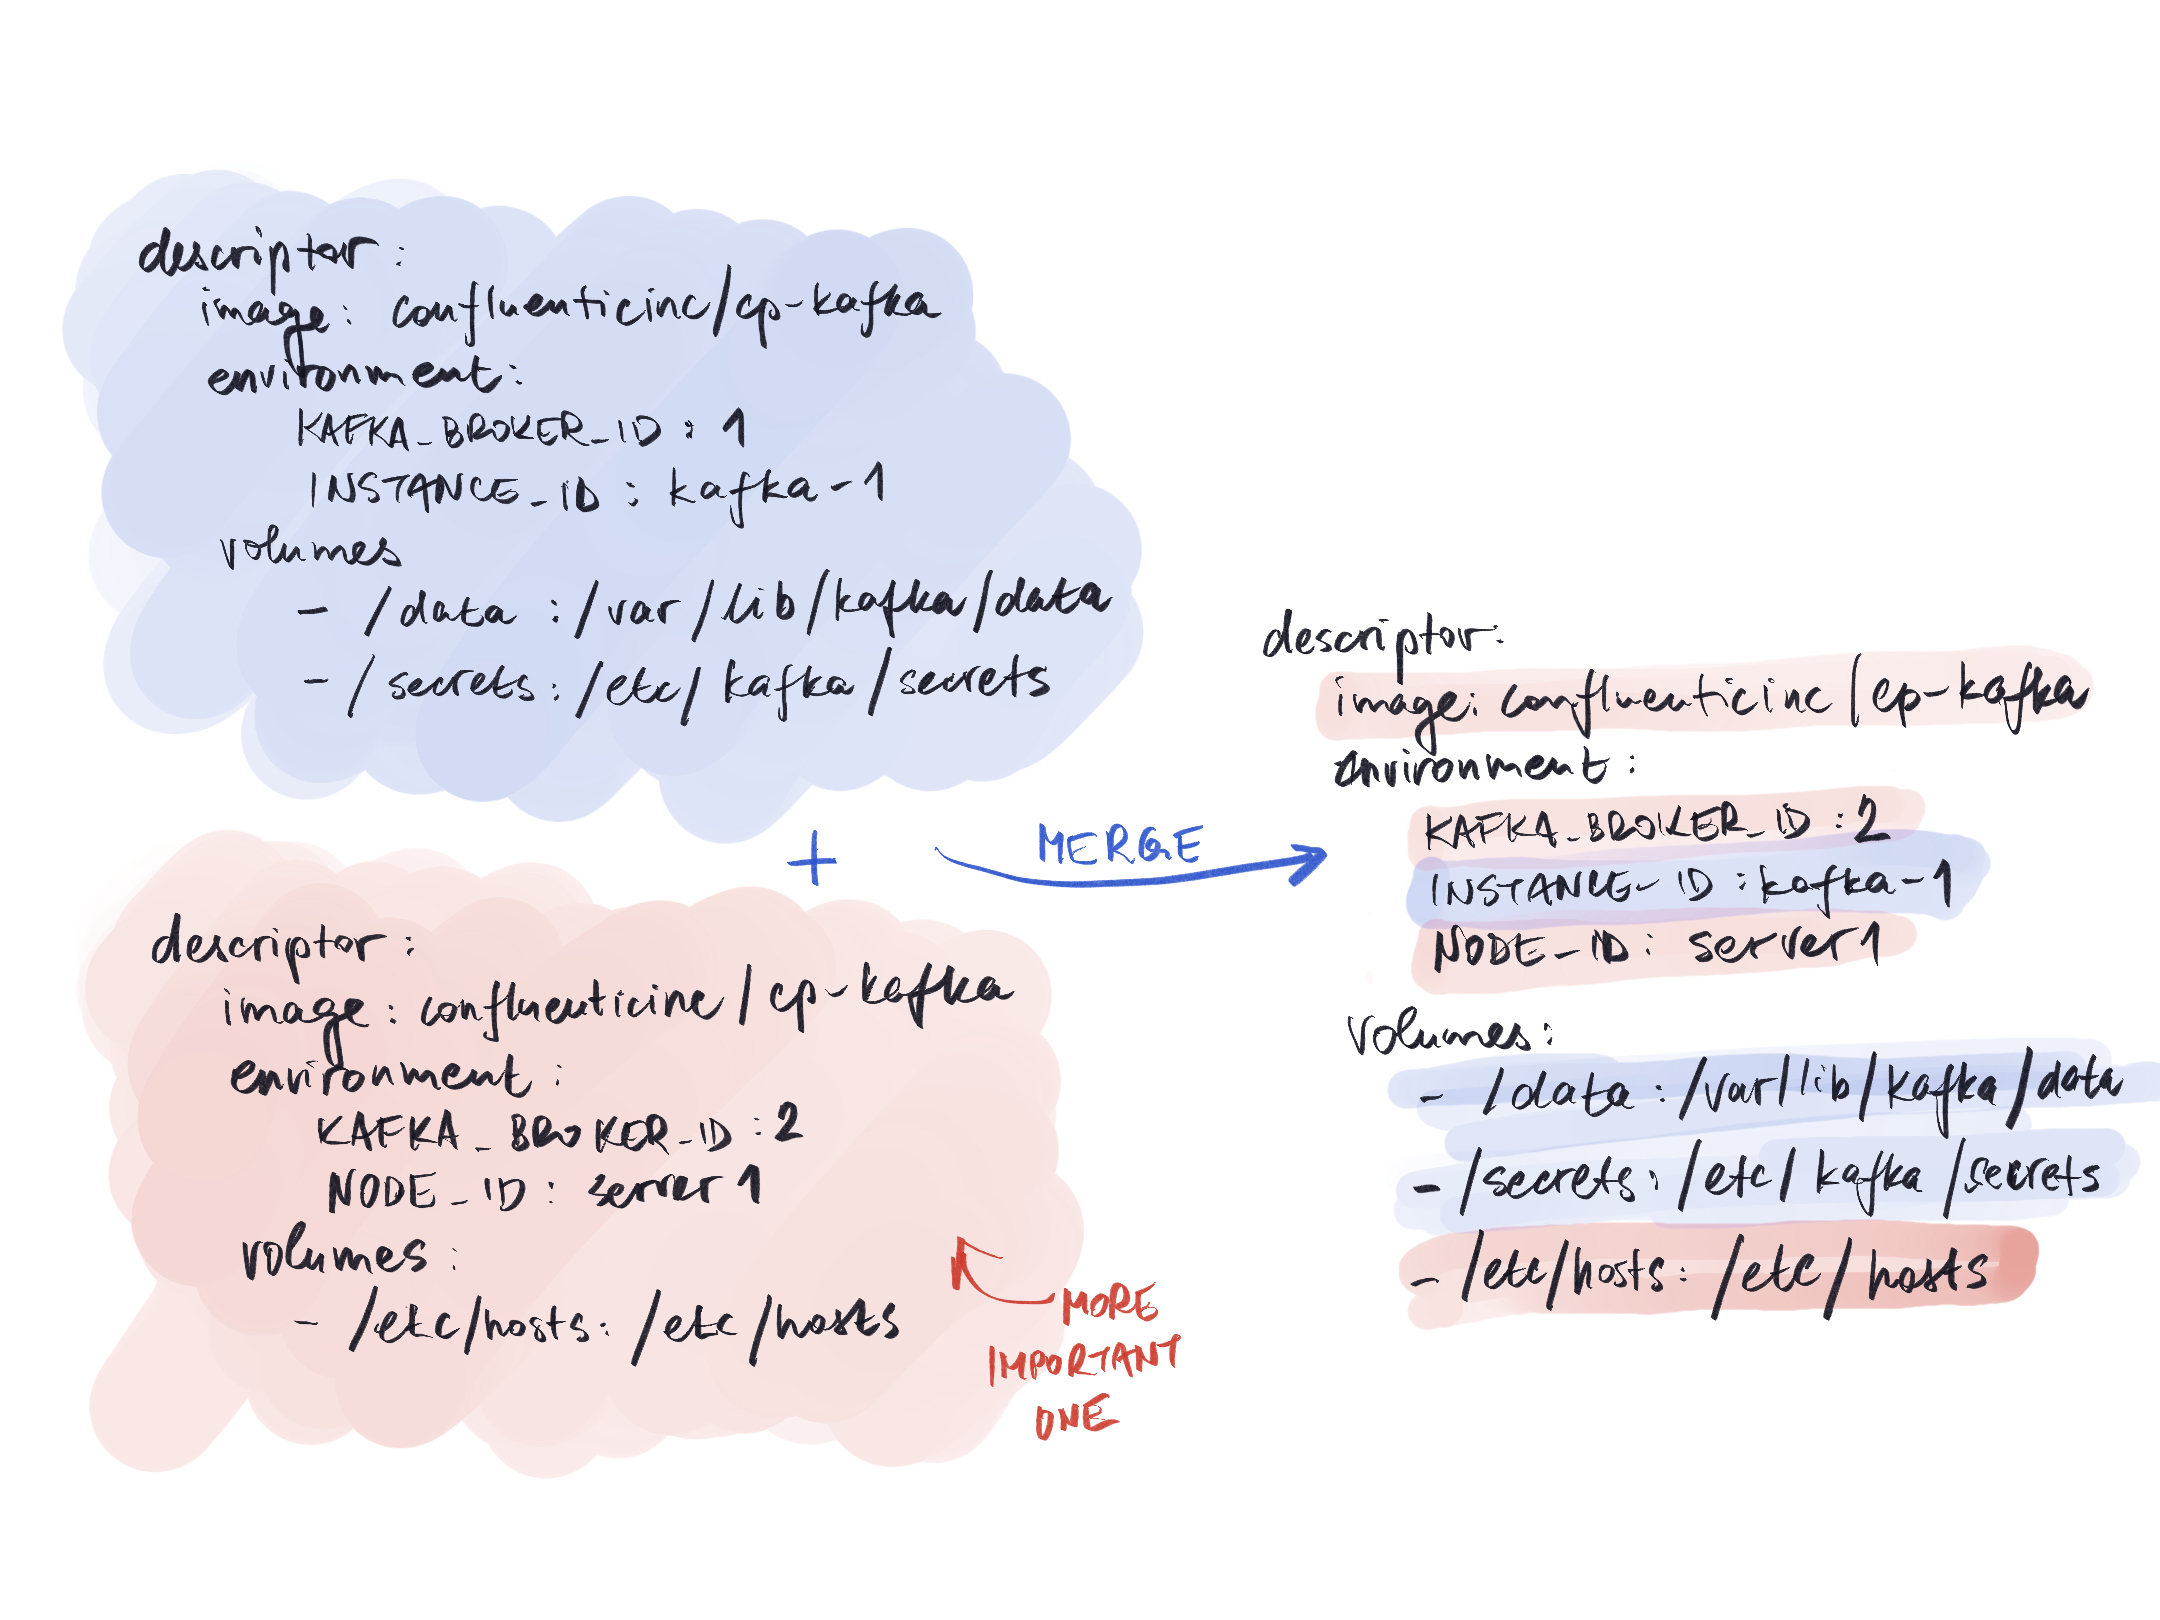 descriptor:
image: confluenticinc/cp-kafka
environment:
KAFKA_BROKER_ID: 1
INSTANCE_ID: kafka-1
volumes
- /data:/var/lib/kafka/data
- /secrets:/etc/kafka/secrets
+
MERGE
descriptor:
image: confluenticinc/cp-kafka
environment:
KAFKA_BROKER_ID:2
NODE_ID: server1
volumes:
- /etc/hosts:/etc/hosts
MORE
IMPORTANT
ONE
descriptor:
image: confluenticinc/cp-kafka
environment:
KAFKA_BROKER_ID:2
INSTANCE_ID:kafka-1
NODE_ID: server1
volumes:
- /data:/var/lib/kafka/data
- /secrets:/etc/kafka/secrets
- /etc/hosts:/etc/hosts